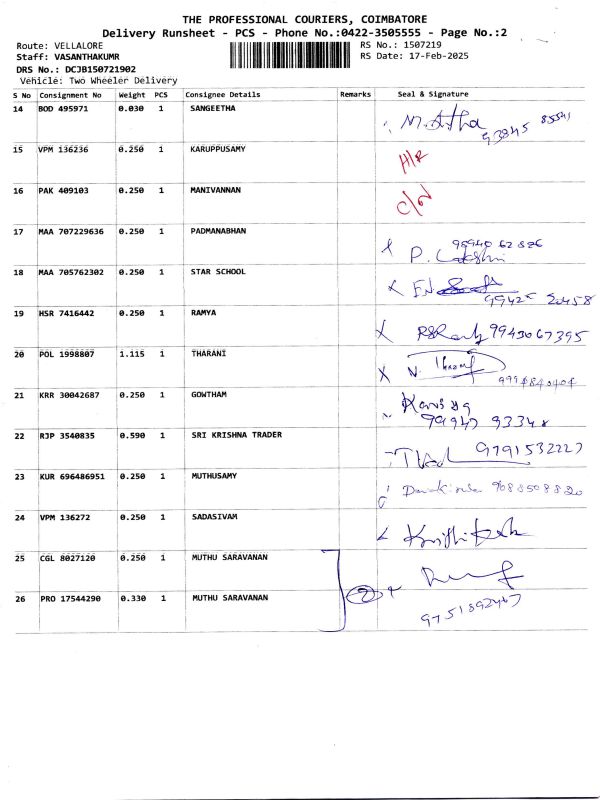 THE PROFESSIONAL COURIERS, COIMBATORE
Delivery Runsheet - PCS - Phone No.:0422-3505555 - Page No.:2
Route: VELLALORE RS No.: 1507219
Staff: VASANTHAKUMR RS Date: 17-Feb-2025
DRS No.: DCJB150721902
Vehicle: Two Wheeler Delivery
S No Consignment No Weight PCS Consignee Details Remarks Seal & Signature
14 BOD 495971 0.030 1 SANGEETHA
15 VPM 136236 0.250 1 KARUPPUSAMY H/R
16 PAK 409103 0.250 1 MANIVANNAN
17 MAA 707229636 0.250 1 PADMANABHAN
P.
18 MAA 705762302 0.250 1 STAR SCHOOL
19 HSR 7416442 0.250 1 RAMYA 9943067395
20 POL 1998807 1.115 1 THARANI
21 KRR 30042687 0.250 1 GOWTHAM
22 RJP 3540835 0.590 1 SRI KRISHNA TRADER 9791532227
23 KUR 696486951 0.250 1 MUTHUSAMY
24 VPM 136272 0.250 1 SADASIVAM
25 CGL 8027120 0.250 1 MUTHU SARAVANAN
26 PRO 17544290 0.330 1 MUTHU SARAVANAN 2